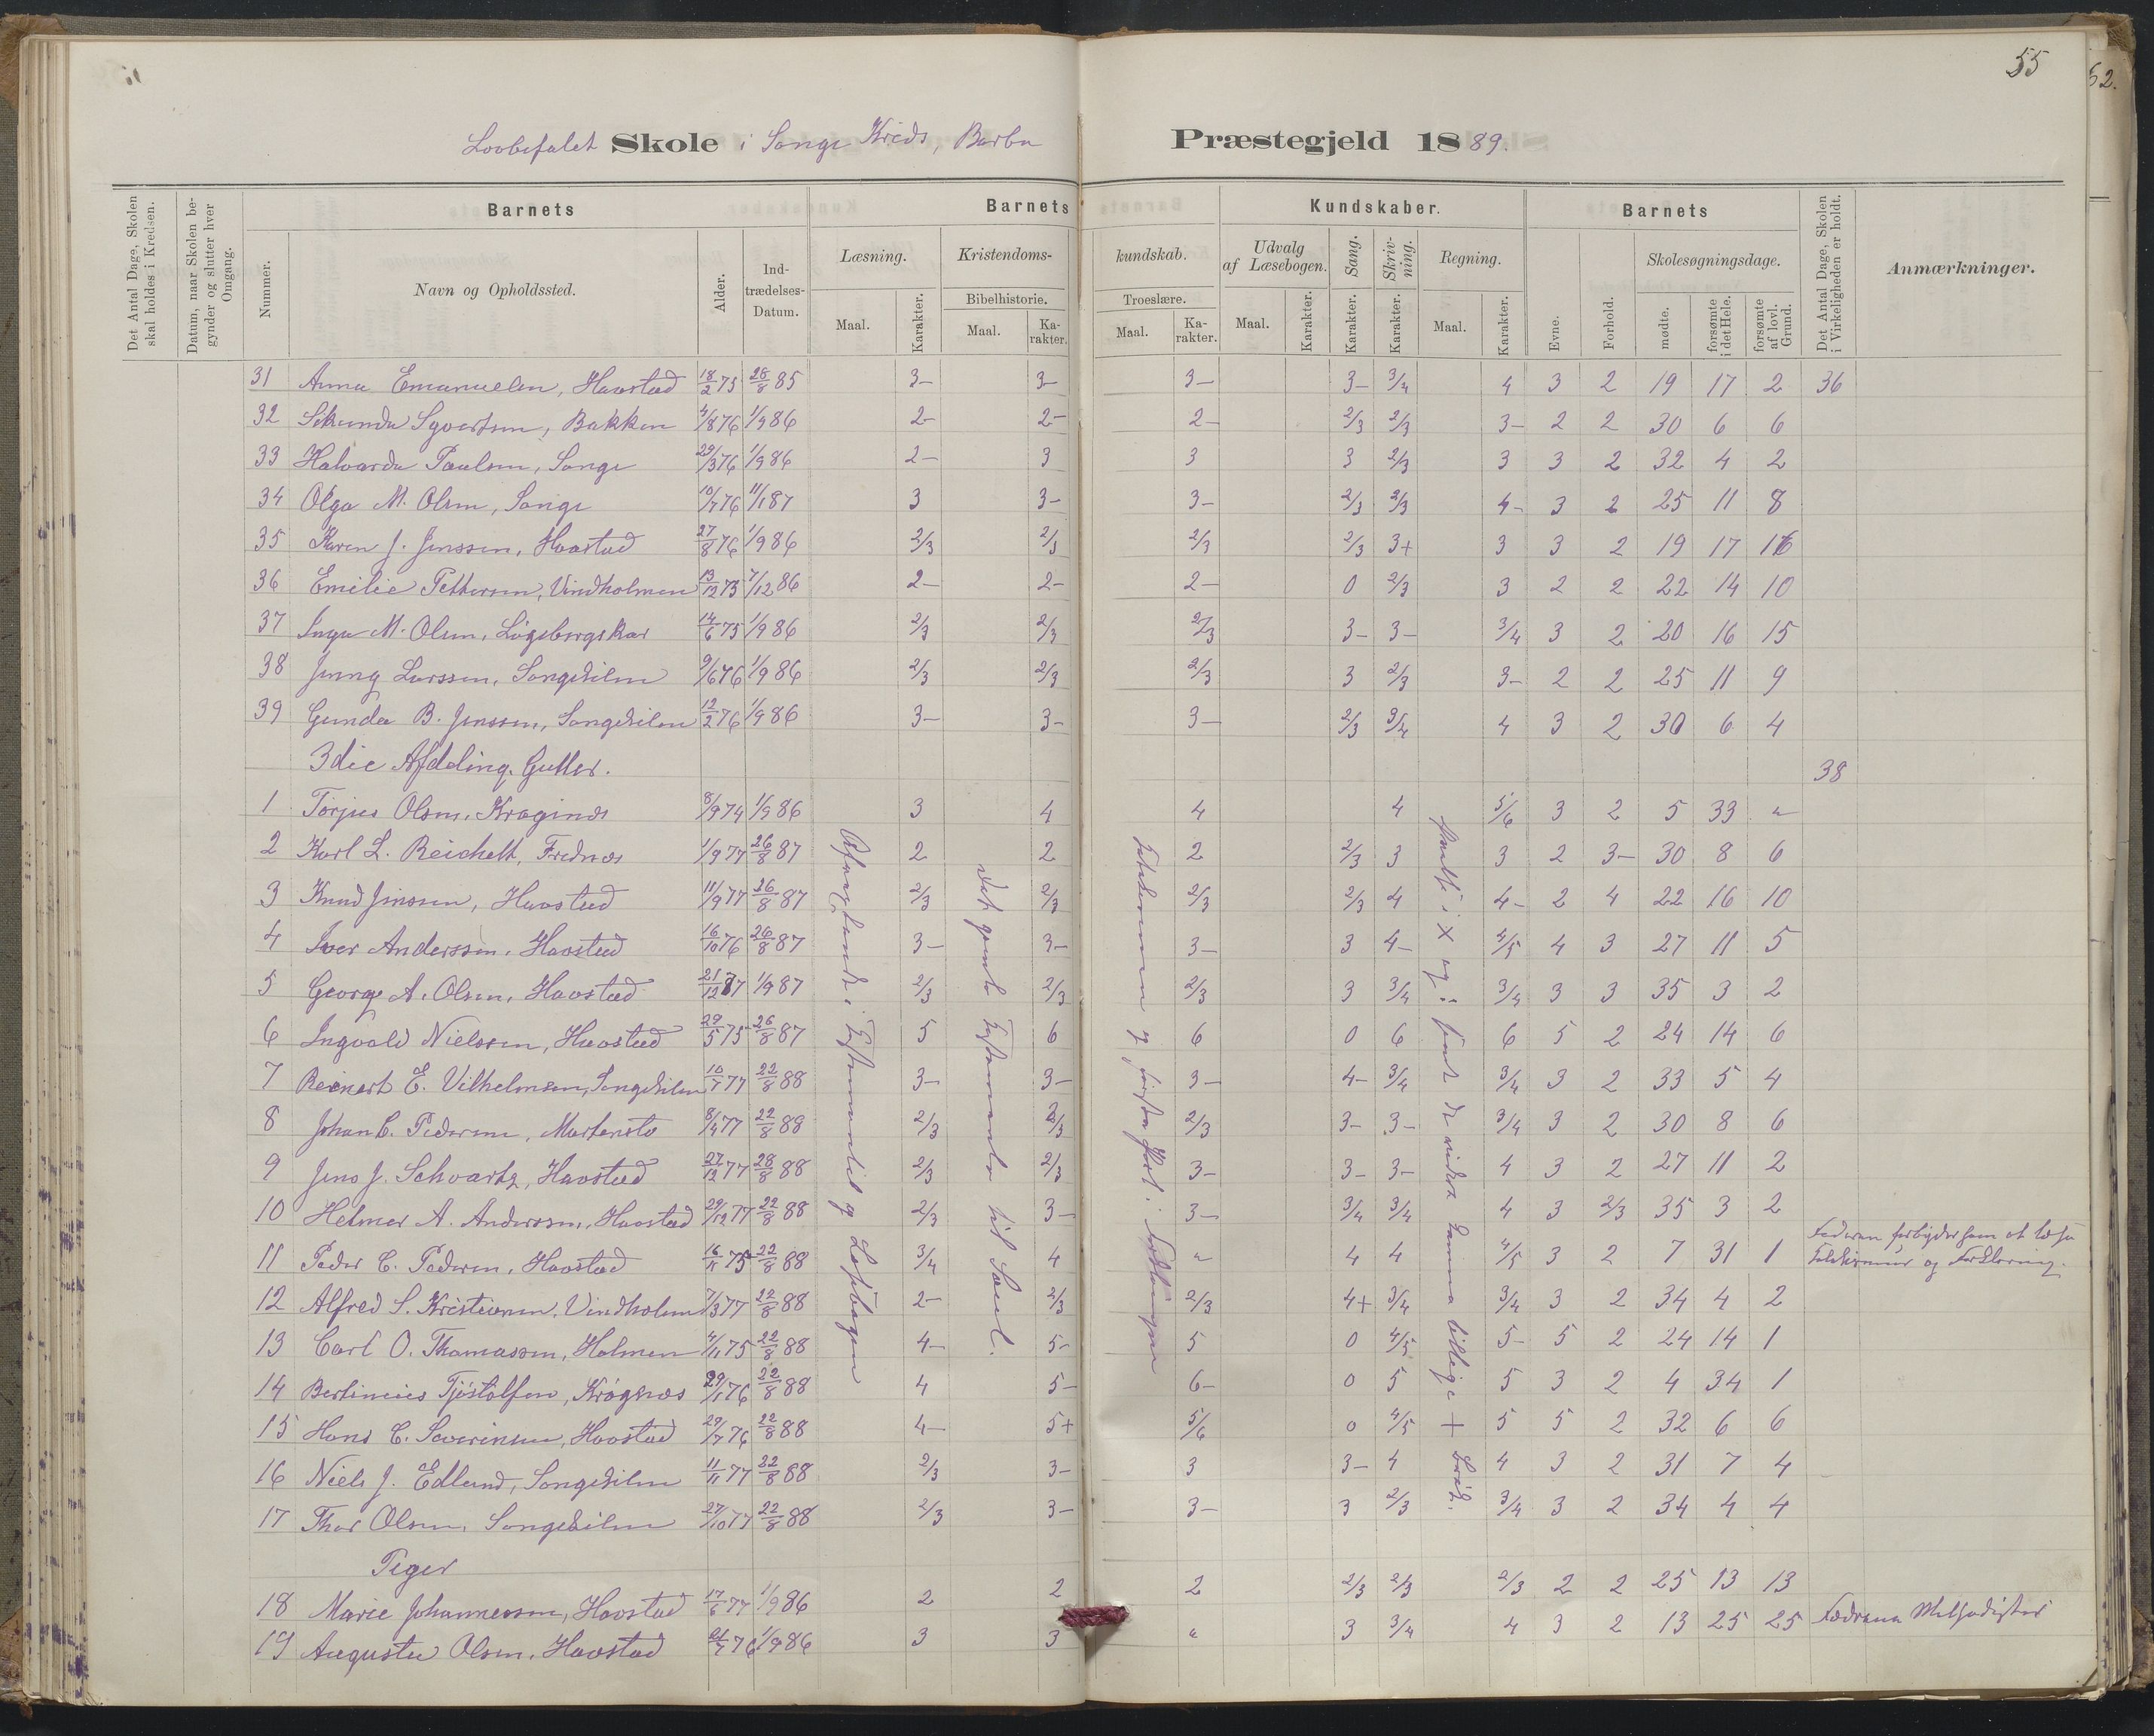 55
52.
Lovbefalet Skole i Songe Kreds, Barbu Præstegjeld 1889.
Det Antal Dage, Skolen skal holdes i Kredsen.
Datum, naar Skolen begynder og slutter hver Omgang.
Barnets
Nummer.
Navn og Opholdssted.
Alder.
Indtrædelses-Datum.
Barnets Kundskaber.
Læsning.
Maal.
Karakter.
Kristendomskundskab.
Bibelhistorie.
Maal.
Karakter.
Troeslære.
Maal.
Karakter.
Udvalg af Læsebogen.
Maal.
Karakter.
Sang.
Karakter.
Skrivning.
Karakter.
Regning.
Maal.
Karakter.
Barnets
Evne.
Forhold.
Skolesøgningsdage.
mødte.
forsømte i det Hele.
forsømte af lovl. Grund.
Det Antal Dage, Skolen i Virkeligheden er holdt.
Anmærkninger.
31 Anna Emanuelsen, Havstad 18/2 75 28/8 85 3- 3- 3- 3- 3/4 4 3 2 19 17 2 36
32 Sekunda Syvertsen, Bakken 4/8 76 1/9 86 2- 2- 2- 2/3 2/3 3- 2 2 30 6 6
33 Halvarda Paulsen, Songe 29/3 76 1/9 86 2- 3 3 3 2/3 3 3 2 32 4 2
34 Olga M. Olsen, Songe 10/7 76 11/1 87 3 3- 3- 2/3 2/3 4- 3 2 25 11 8
35 Karen J. Jenssen, Havstad 27/8 76 1/9 86 2/3 2/3 2/3 2/3 3+ 3 3 2 19 17 16
36 Emilie Pettersen, Vindholmen 13/12 73 7/12 86 2- 2- 2- 0 2/3 3 2 2 22 14 10
37 Inga M. Olsen, Løgsbergskar 14/6 75 1/9 86 2/3 2/3 2/3 3- 3- 3/4 3 2 20 16 15
38 Jenny Larssen, Songekilen 9/6 76 1/9 86 2/3 2/3 2/3 3 2/3 3- 2 2 25 11 9
39 Gunda B. Jenssen, Songekilen 12/2 76 1/9 86 3- 3- 3- 2/3 3/4 4 3 2 30 6 4
3die Afdeling. Gutter. 38
1 Torjus Olsen, Kragsnes 8/9 74 1/9 86 3 4 4 4 5/6 3 2 5 33 "
2 Karl L. Reichelt, Frednes 1/9 77 26/8 87 2 2 2 2/3 3 3 2 3- 30 8 6
3 Knud Jenssen, Havstad 11/9 77 26/8 87 2/3 2/3 2/3 2/3 4 4- 2 4 22 16 10
4 Iver Anderssen, Havstad 16/10 76 26/8 87 3- 3- 3- 3 4- 4/5 4 3 27 11 5
5 George A. Olsen, Havstad 21/12 77 1/9 87 2/3 2/3 2/3 3 3/4 3/4 3 3 35 3 2
6 Ingvald Nielssen, Havstad 29/5 75 26/8 87 5 6 6 0 6 6 5 2 24 14 6
7 Reinert E. Vilhelmsen, Songekilen 10/7 77 22/8 88 3- 3- 3- 4- 3/4 3/4 3 2 33 5 4
8 Johan C. Pedersen, Martensto 8/4 77 22/8 88 2/3 2/3 2/3 3- 3- 3/4 3 2 30 8 6
9 Jens J. Schvartz, Havstad 27/12 77 28/8 88 2/3 2/3 3- 3- 3- 4 3 2 27 11 2
10 Helmer A. Anderssen, Havstad 29/12 77 22/8 88 2/3 3- 3- 3/4 3/4 4 3 2/3 35 3 2
11 Peder C. Pedersen, Havstad 16/11 75 22/8 88 3/4 4 " 4 4 4/5 3 2 7 31 1 Faderen forbyder ham at læse Katekismus og Forklaring.
12 Alfred S. Kristensen, Vindholmen 7/3 77 22/8 88 2- 2/3 2/3 4+ 3/4 3/4 3 2 34 4 2
13 Carl O. Thomassen, Holmen 4/11 75 22/8 88 4- 5- 5 0 4/5 5- 5 2 24 14 1
14 Bertinius Tjøstolfsen, Krøgenes 29/1 76 22/8 88 4 5- 6- 0 5 5 3 2 4 34 1
15 Hans C. Severinsen, Havstad 29/7 76 22/8 88 4- 5+ 5/6 0 4/5 5 5 2 32 6 6
16 Niels J. Edlund, Songekilen 11/11 77 22/8 88 2/3 3- 3 3- 4 4 3 2 31 7 4
17 Thor Olsen, Songekilen 27/10 77 22/8 88 2/3 3- 3- 3 2/3 3/4 3 2 34 4 4
Piger
18 Marie Johannessen, Havstad 17/6 77 1/9 86 2 2 2 2/3 2/3 2/3 2 2 25 13 13
19 Augusta Olsen, Havstad 21/7 76 1/9 86 3 3 " 3 3/4 4 3 2 13 25 25 Forældrene Methodister
i Testamentet og Læsebogen
Det gamle Testamente til Saul.